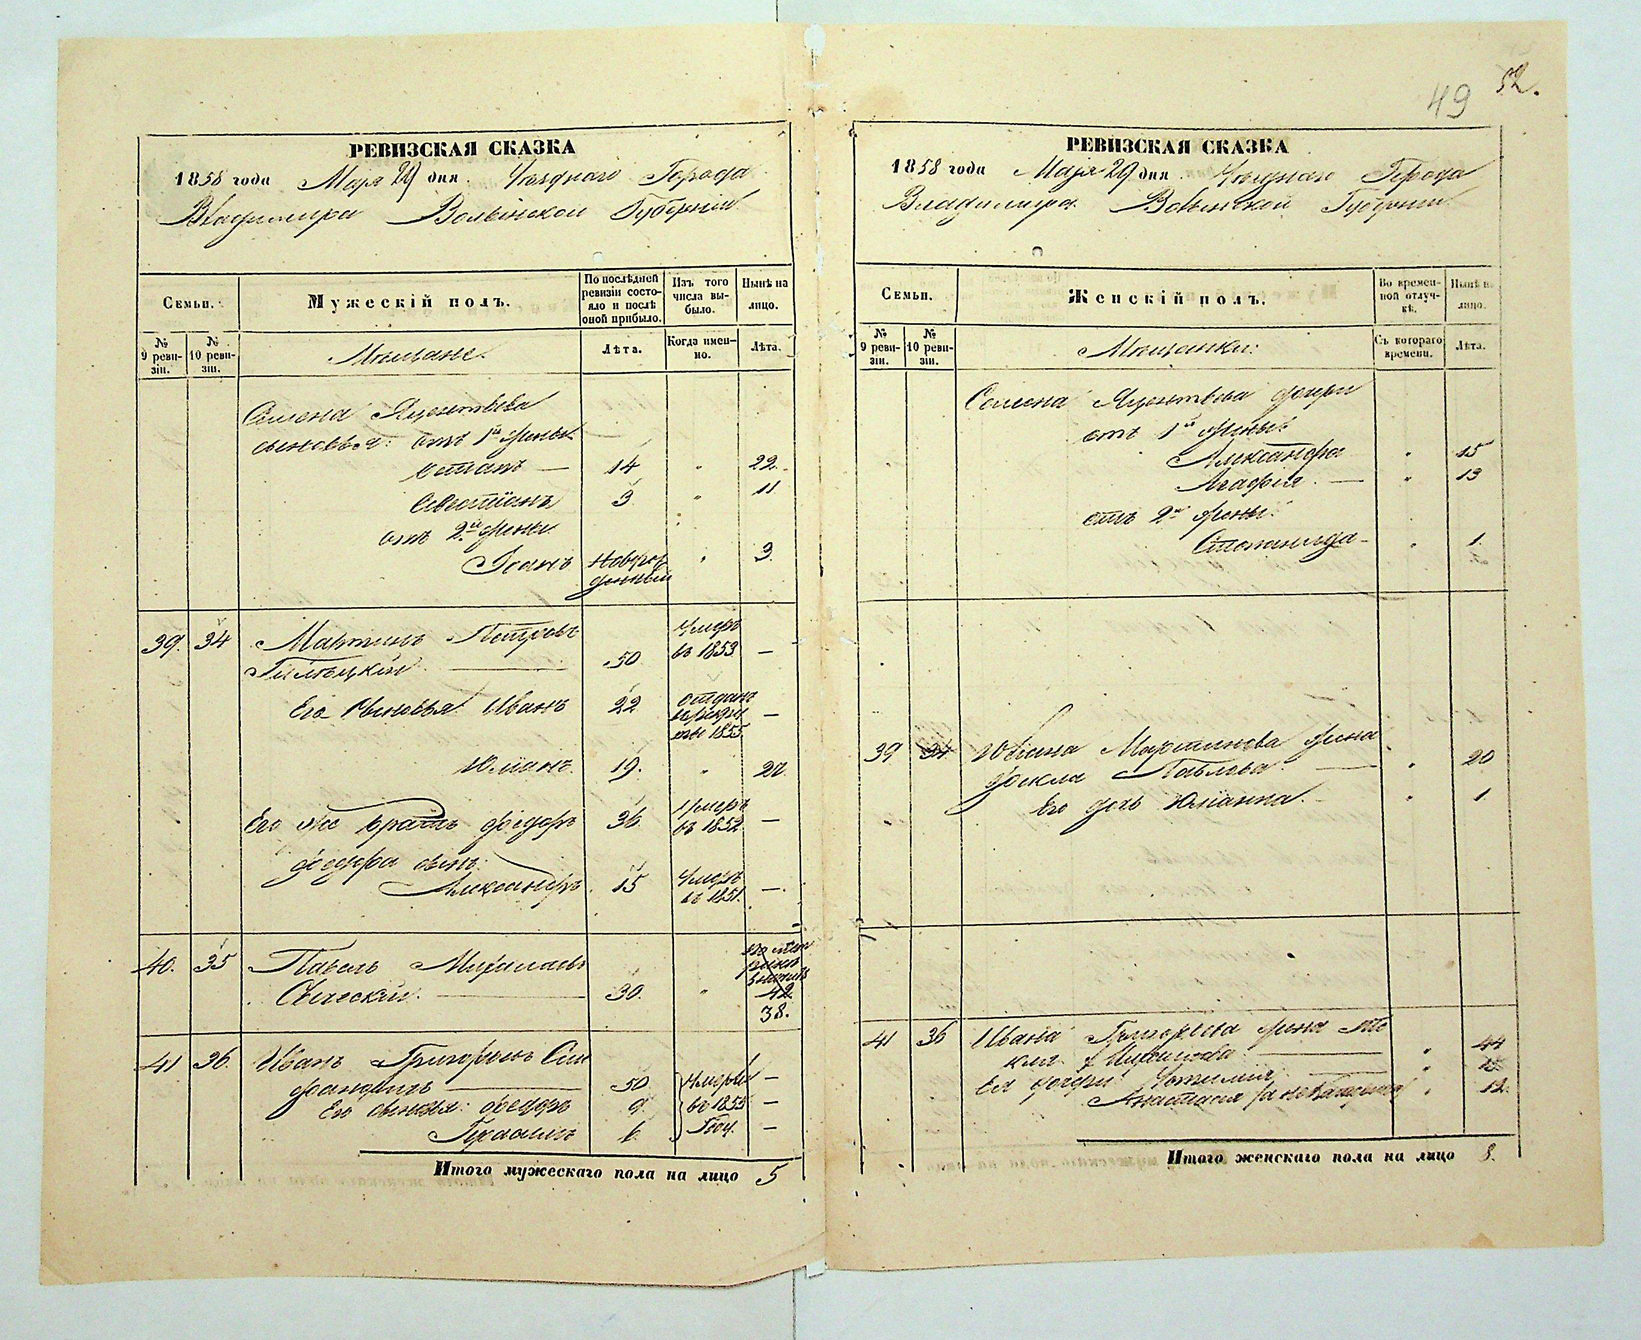 49 52.
РЕВИЗСКАЯ СКАЗКА
1858 года Маія 29 дня. Уѣзднаго Города
Владимира Волынской Губерніи
Семьи.
Мужескій полъ.
По послѣдней ревизіи состояло и послѣ оной прибыло.
Изъ того числа выбыло.
Нынѣ на лицо.
№ 9 ревизіи.
№ 10 ревизіи.
Мѣщане.
Лѣта.
Когда именно.
Лѣта.
Семена Яцентьева
сыновья: отъ 1й жены
Остапъ — 14 " 22.
Севастіанъ 3 " 11
отъ 2й жены
Іоанъ Новорожденный " 3.
39. 34 Мартинъ Петровъ умеръ
50 въ 1853 —
Его сыновья Иванъ 22 отданъ въ рекруты 1855 —
Юліанъ 19. " 27.
Его же братъ Федоръ 36 умеръ въ 1852 —
Федора сынъ:
Александръ 15 умеръ въ 1851. —
40. 35 Павелъ Михайловъ
30. " 42
38.
41 36. Иванъ Григорьевъ
50 умерли —
Его сыновья: Федоръ 9 въ 1855 —
Герасимъ 6. году. —
Итого мужескаго пола на лицо 5
РЕВИЗСКАЯ СКАЗКА
1858 года Маія 29 дня. Уѣзднаго Города
Владимира Волынской Губерніи
Семьи.
Женскій полъ.
Во временной отлучкѣ.
Нынѣ на лицо.
№ 9 ревизіи.
№ 10 ревизіи.
Мѣщанки:
Съ котораго времени.
Лѣта.
Семена Яцентьева дочери
отъ 1й жены:
Александра " 15
Агафія — " 13
отъ 2й жены:
Степанида — " 1.
39 34 Юліана Мартинова жена
Фекла Павлова — " 20
Его дочь Юліанна. " 1.
41 36 Ивана Григорьева жена Те
кля Михайлова — " 44
Ея дочери: — " 15
Анастасія " 12.
Итого женскаго пола на лицо 8.